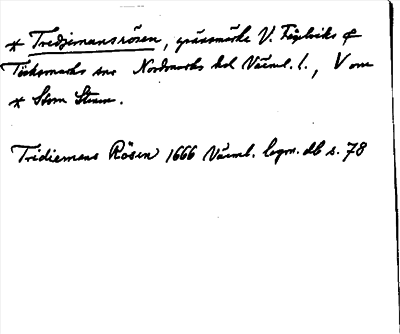 * Tredjemansrösen, gränsmärke V. Fågelviks o
Töcksmarks snr Nordmarks hd Värml. l., V om
* Stora Strand.
Tridiemans Rösen 1666 Värml. lagm. db s. 78